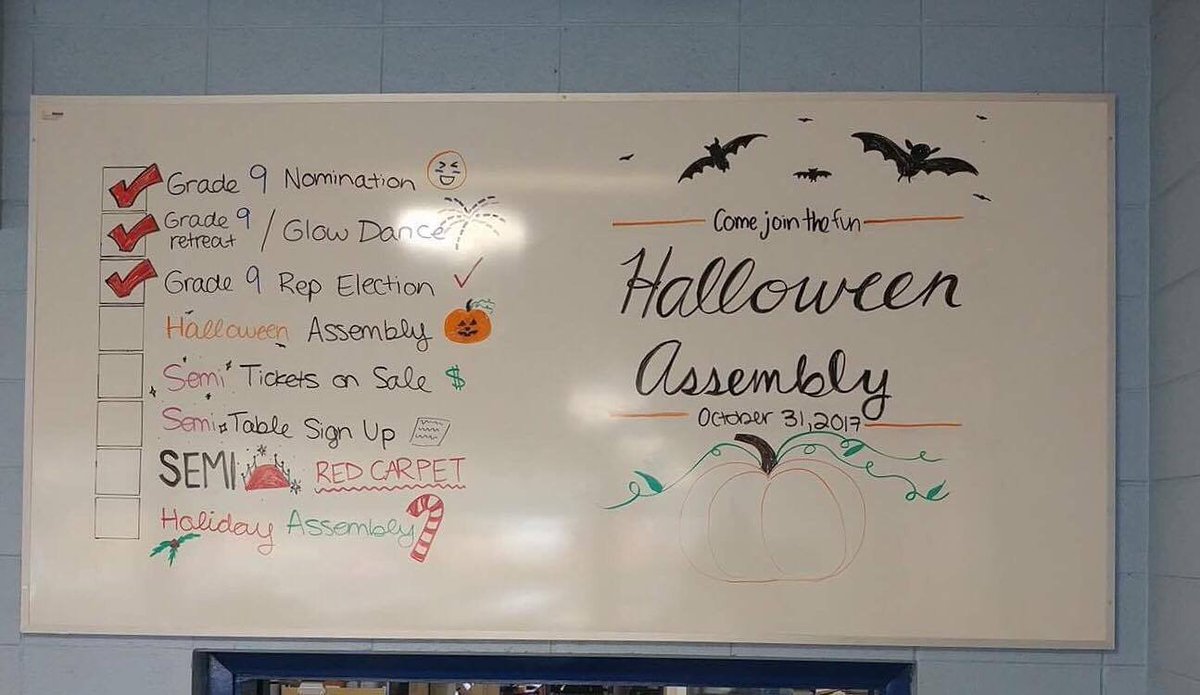 Grade 9 Nomination
Grade 9 retreat / Glow Dance
Grade 9 Rep Election
Halloween Assembly
Semi Tickets on Sale $
Semi Table Sign Up
SEMI RED CARPET
Holiday Assembly
Come join the fun
Halloween
Assembly
October 31, 2017